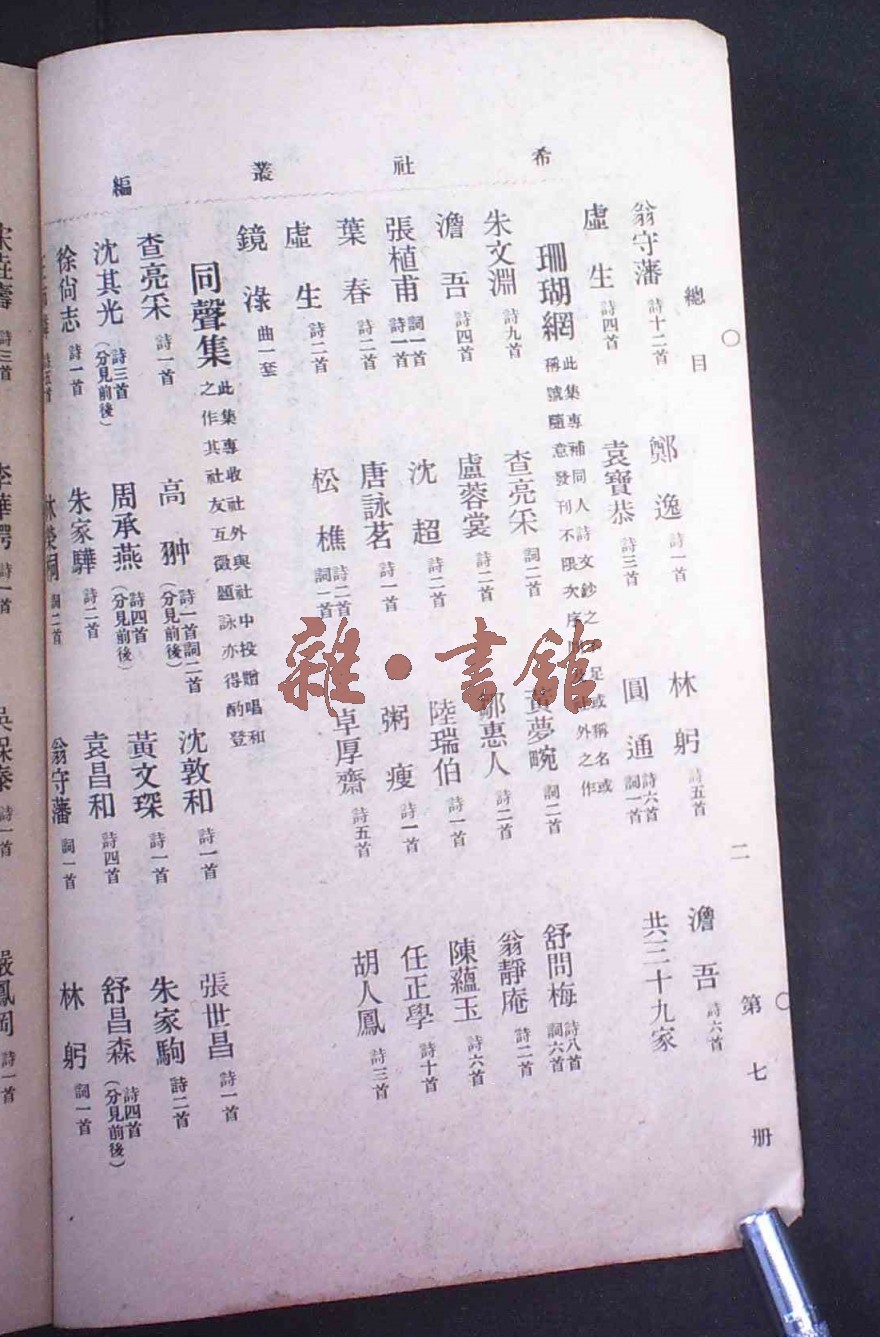 希社叢編
總目 二 第七册
翁守藩 詩十二首 鄭逸 詩一首 林躬 詩五首 澹吾 詩六首
虛生 詩四首 袁寶恭 詩三首 圓通 詩六首 詞一首 共三十九家
珊瑚網 此集專補同人詩文鈔之 足或稱名或
稱號隨意發刊不限次序 外之作
朱文淵 詩九首 查亮采 詞二首 黃夢畹 詞二首 舒問梅 詩八首 詞六首
澹吾 詩四首 盧蓉裳 詩二首 鄒惠人 詩二首 翁靜庵 詩二首
張植甫 詞一首 詩一首 沈超 詩二首 陸瑞伯 詩一首 陳蘊玉 詩六首
葉春 詩二首 唐詠茗 詩一首 粥瘦 詩一首 任正學 詩十首
虛生 詩二首 松樵 詩二首 詞一首 卓厚齋 詩五首 胡人鳳 詩三首
鏡淥 曲一套
同聲集 此集專收社外與社中投贈唱和
之作其社友互徵題詠亦得酌登
查亮采 詩一首 高翀 詩一首詞二首 (分見前後) 沈敦和 詩一首 張世昌 詩一首
沈其光 詩三首 (分見前後) 周承燕 詩四首 (分見前後) 黃文琛 詩一首 朱家駒 詩二首
徐尙志 詩一首 朱家驊 詩二首 袁昌和 詩四首 舒昌森 詩四首 (分見前後)
詩五首 林榮桐 詞二首 翁守藩 詞一首 林躬 詞一首
詩三首 李華 詩一首 吳保泰 詩一首 嚴鳳岡 詩一首
雜·書館